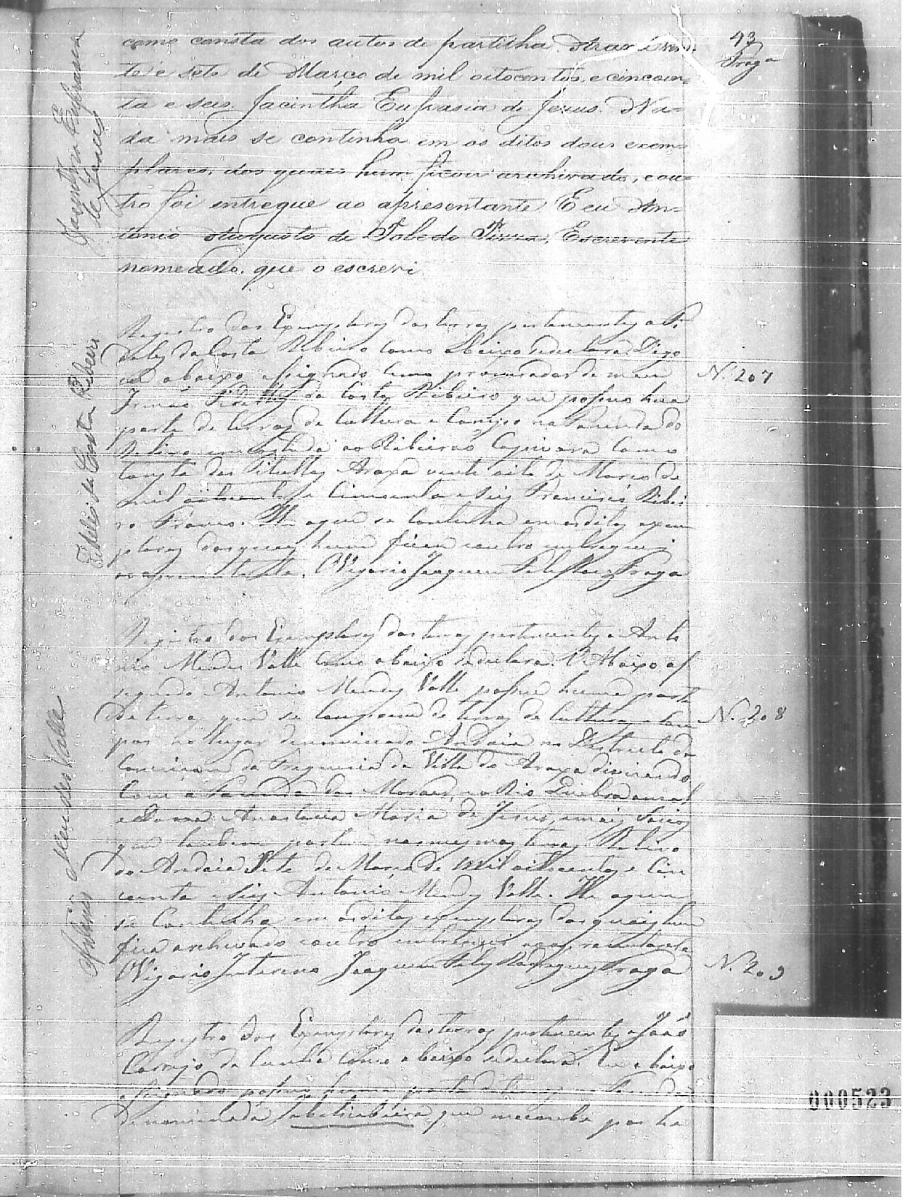 43
Fraga
como consta dos autos de partilha. Araxá vin-
te e sete de Março de mil oitocentos, e cincoen-
ta e seis. Jacintha Eufrasia de Jezus. Na-
da mais se continha em os ditos dous exem-
plares, dos quais hum ficou archivado, e ou-
tro foi entregue ao apresentante. E eu An-
tonio Augusto de Toledo Pizza, Escrevente
nomeado, que o escrevi.
Registro dos Exemplares das terras pertencentes a Fi-
delis da Costa Ribeiro como abaixo sedeclara. Digo
eu abaixo assignado como procurador de meu
N. 207
Irmão Fidellis da Costa Ribeiro que possuo hua
parte de terras de cultura e Campo na Fazenda do
ao Ribeirão Capivara como
consta dos titulles Araxa vinte oito de Março de
mil oitocentos e Cincoenta e Seis Francisco Ribei-
ro Franco. He oque se continha em os ditos exem-
plares dos quaes hum ficou e outro entreguei
ao aprezentante. O Vigario Joaquim Fraga
Fidelis da Costa Ribeiro
Registro dos Exemplares das terras pertencentes a Anto-
nio Mendes Valle como abaixo sedeclara. O Abaixo as-
signado Antonio Mendes Valle possue huma parte
de terra que se compoem de terras de cultura e Cam-
N. 208
pos no lugar denominado Andaia no Destricto da
Conceicam da Freguesia da Villa do Araxa divizando
Com a Fazenda dos Moraes, no Rio Quebra anzol
e Donna Anastacia Maria de Jesus, e mais Socios
que tambem partem nas mesmas terras Ribeiro
do Andaia Sete de Março de mil oitocentos e Cin-
coenta e Seis Antonio Mendes Valle. He oque
se Continha em os ditos exemplares dos quais hum
fica archivado e outro entreguei ao aprezentante
O Vigario Interino Joaquim Felis Rodrigues Fraga
N. 209
Antonio Mendes Valle
Registro dos Exemplares das terras pertencentes a João
Cornejo da Cunha como abaixo sedeclara. Eu abaixo
assignado possuo huma parte de terras na Fazenda
denominada Jabuticabeira que me coube por ha
000523